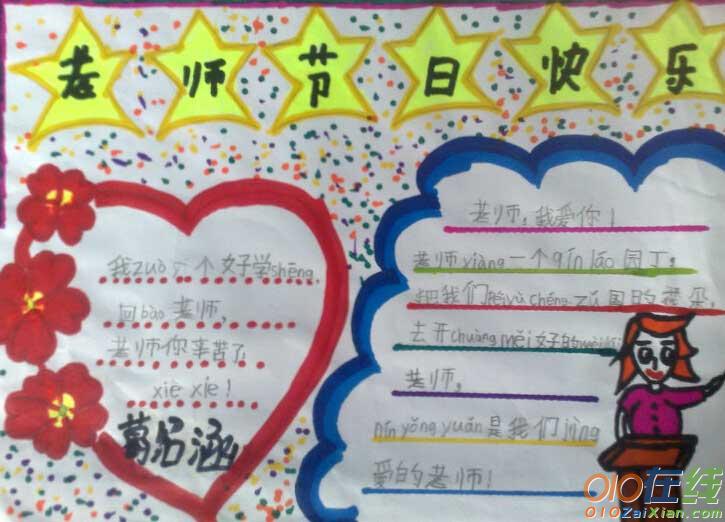 老师节日快乐
我zuò一个好学shēng,
回bào老师,
老师你辛苦了!
xiè xie!
老师,我爱你!
老师xiàng一个qín láo园丁,
把我们péi yù chéng zǔ国的花朵,
去开chuàng měi好的
老师,
nín yǒng yuǎn是我们jìng
爱的老师!
010在线
010ZaiXian.com